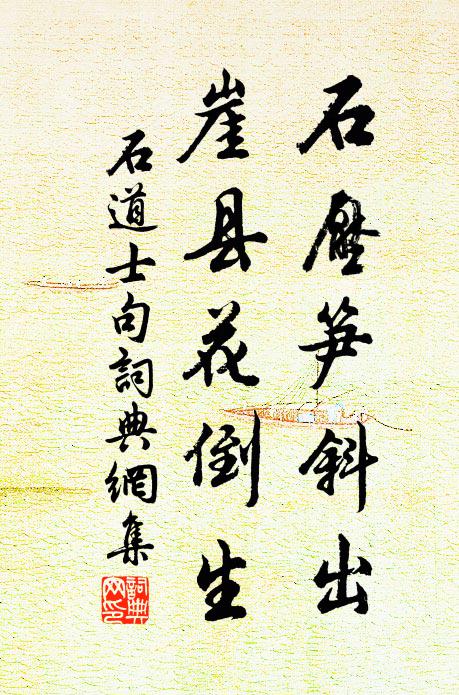 石壓笋斜出
崖县花倒生
石道士句詞典網集
詞典网印